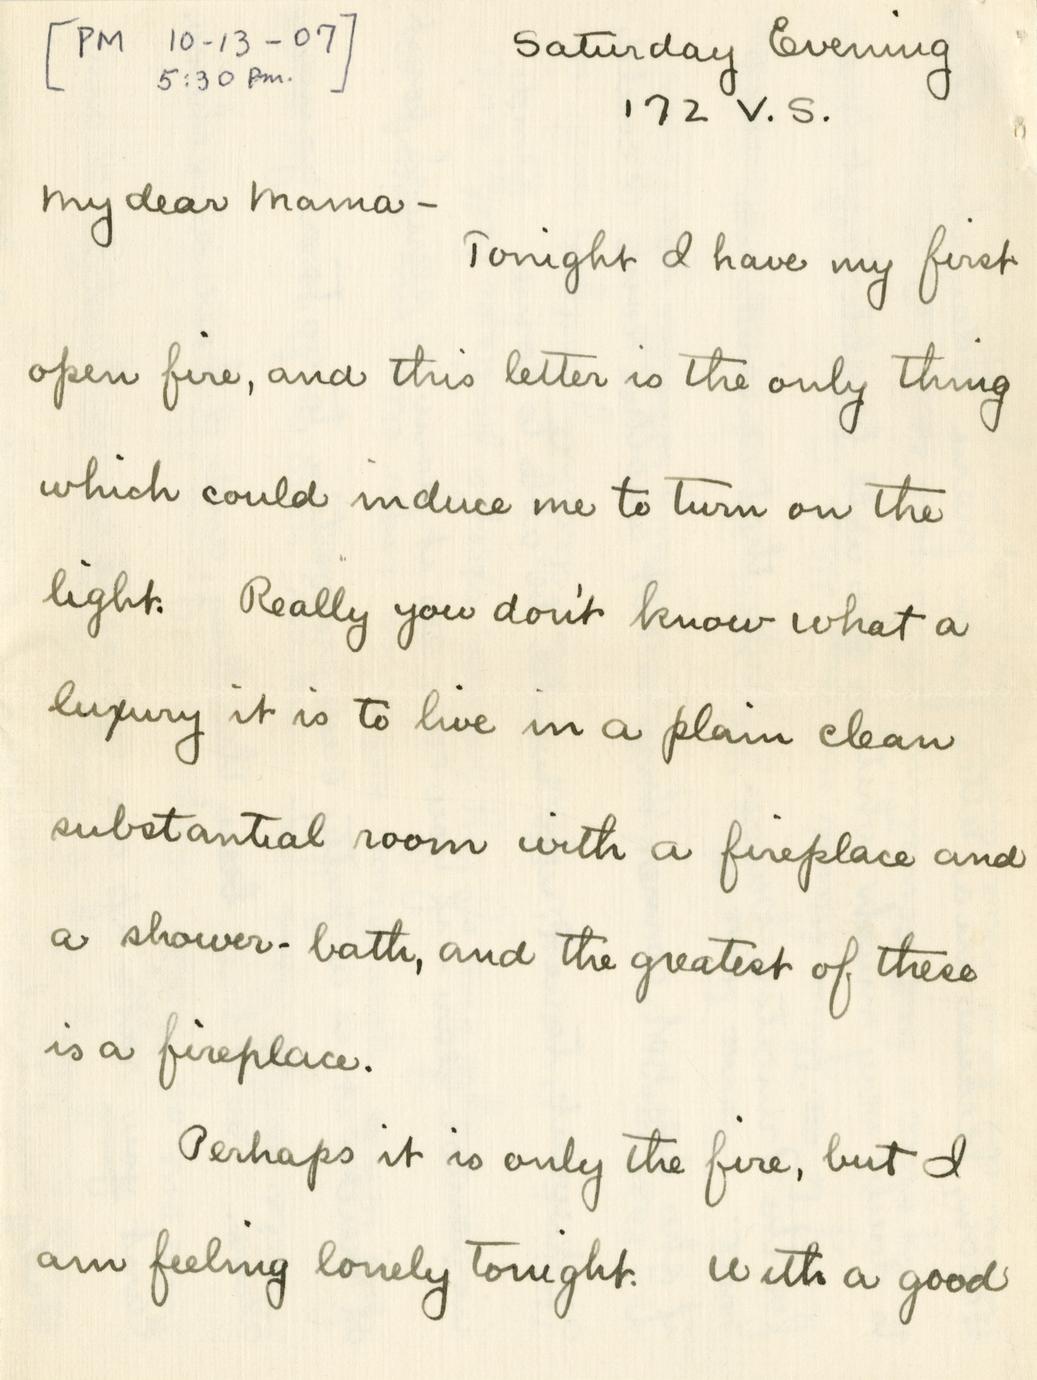 [PM 10-13-07
5:30 Pm.]
Saturday Evening
172 V.S.
My dear Mama -
Tonight I have my first
open fire, and this letter is the only thing
which could induce me to turn on the
light. Really you don't know what a
luxury it is to live in a plain clean
substantial room with a fireplace and
a shower-bath, and the greatest of these
is a fireplace.
Perhaps it is only the fire, but I
am feeling lonely tonight. With a good